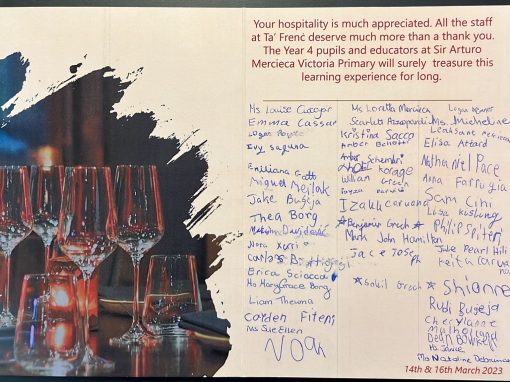 Your hospitality is much appreciated. All the staff
at Ta' Frenċ deserve much more than a thank you.
The Year 4 pupils and educators at Sir Arturo
Mercieca Victoria Primary will surely treasure this
learning experience for long.
Ms Louise
Emma Cassar
Logan
Ivy
Emiliana
Miguel Mejlak
Jake Bugeja
Thea Borg
Nora
Erica Sciacca
Ms Mary Grace Borg
Liam Theuma
Cayden Fiteni
Ms Sue Ellen
Noah
Ms Loretta Mercieca
Scarlett Azzopardi
Kristina Sacco
Amber
Schembri
William Grech
Izaak Caruana
Benjamin Grech
Mark John Hamilton
Jake Joseph
Grech
Logan
Ms Micheline
Elisa Attard
Nathaniel Pace
Anna Farrugia
Sam Cini
Luza
Philip Spiteri
Jake Pearl Hili
Keita Caruana
Shianne
Rudi Bugeja
Cherylanne
Mulholland
Dean
Ms
Ms Nataline
14th & 16th March 2023